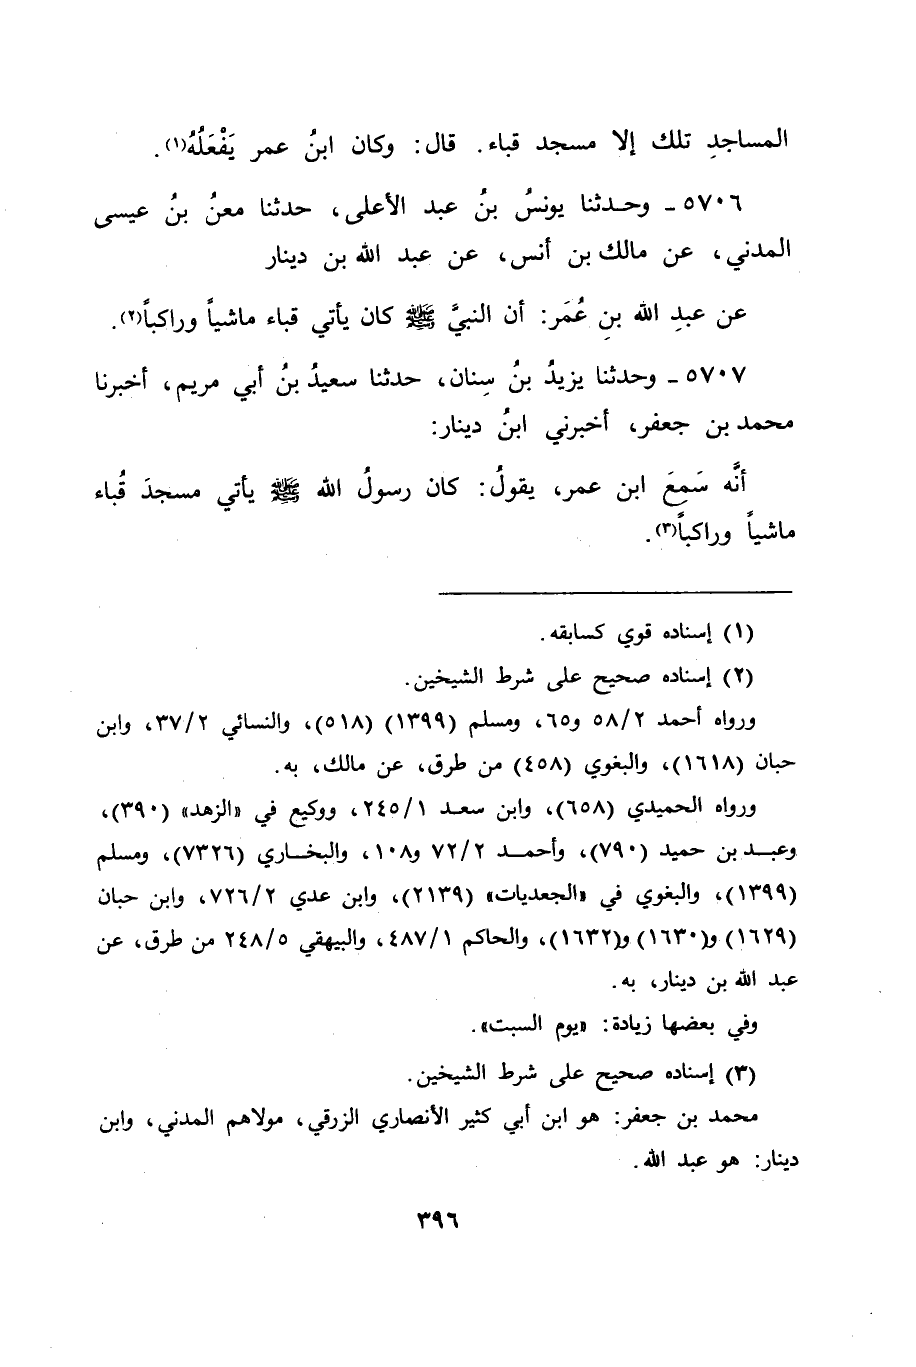 المساجدِ تلك إلا مسجد قباء. قال: وكان ابنُ عمر يَفْعَلُهُ(١).
٥٧٠٦ - وحدثنا يونسُ بنُ عبد الأعلى، حدثنا معنُ بنُ عيسى
المدني، عن مالك بن أنس، عن عبد الله بن دينار
عن عبدِ الله بنِ عُمَر: أن النبيَّ ﷺ كان يأتي قباء ماشياً وراكباً(٢).
٥٧٠٧ - وحدثنا يزيدُ بنُ سِنان، حدثنا سعيدُ بنُ أبي مريم، أخبرنا
محمد بن جعفر، أخبرني ابنُ دينار:
أنَّه سَمِعَ ابن عمر، يقولُ: كان رسولُ الله ﷺ يأتي مسجدَ قُباء
ماشياً وراكباً(٣).
(١) إسناده قوي كسابقه.
(٢) إسناده صحيح على شرط الشيخين.
ورواه أحمد ٥٨/٢ و٦٥، ومسلم (١٣٩٩) (٥١٨)، والنسائي ٣٧/٢، وابن
حبان (١٦١٨)، والبغوي (٤٥٨) من طرق، عن مالك، به.
ورواه الحميدي (٦٥٨)، وابن سعد ٢٤٥/١، ووكيع في «الزهد» (٣٩٠)،
وعبد بن حميد (٧٩٠)، وأحمد ٧٢/٢ و١٠٨، والبخاري (٧٣٢٦)، ومسلم
(١٣٩٩)، والبغوي في «الجعديات» (٢١٣٩)، وابن عدي ٧٢٦/٢، وابن حبان
(١٦٢٩) و(١٦٣٠) و(١٦٣٢)، والحاكم ٤٨٧/١، والبيهقي ٢٤٨/٥ من طرق، عن
عبد الله بن دينار، به.
وفي بعضها زيادة: «يوم السبت».
(٣) إسناده صحيح على شرط الشيخين.
محمد بن جعفر: هو ابن أبي كثير الأنصاري الزرقي، مولاهم المدني، وابن
دينار: هو عبد الله.
٣٩٦